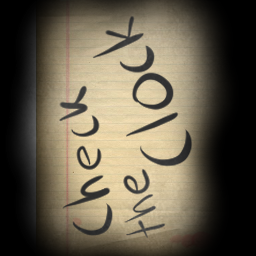 check
the Clock